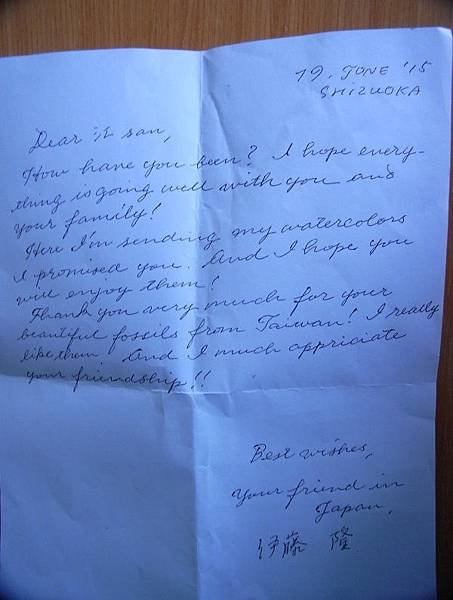 19. JUNE '15
SHIZUOKA
Dear san,
How have you been? I hope every-
thing is going well with you and
your family!
Here I'm sending my watercolors
I promised you. And I hope you
will enjoy them!
Thank you very much for your
beautiful fossils from Taiwan! I really
like them. And I much appriciate
your friendship!!
Best wishes,
Your friend in
Japan,
伊藤 隆